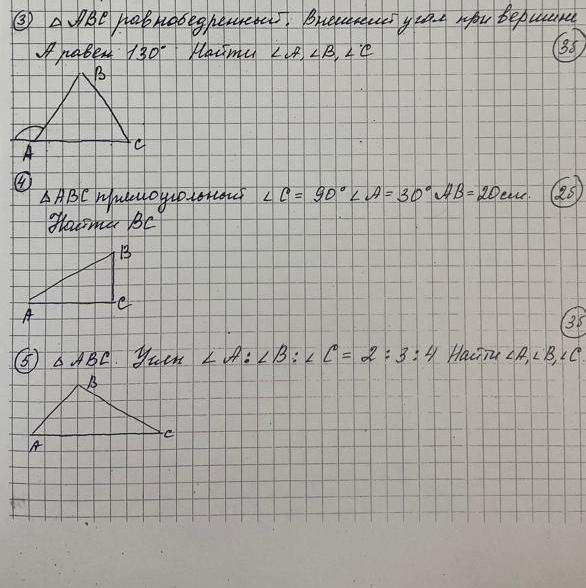 ③ △ ABC равнобедренный. Внешний угол при вершине
A равен 130° Найти ∠A, ∠B, ∠C
3б
B
A
C
④
△ABC прямоугольный ∠C = 90° ∠A = 30° AB = 20см. 2б
Найти BC
B
A
C
3б
⑤ △ ABC. Углы ∠A : ∠B : ∠C = 2 : 3 : 4 Найти ∠A, ∠B, ∠C
B
A
C